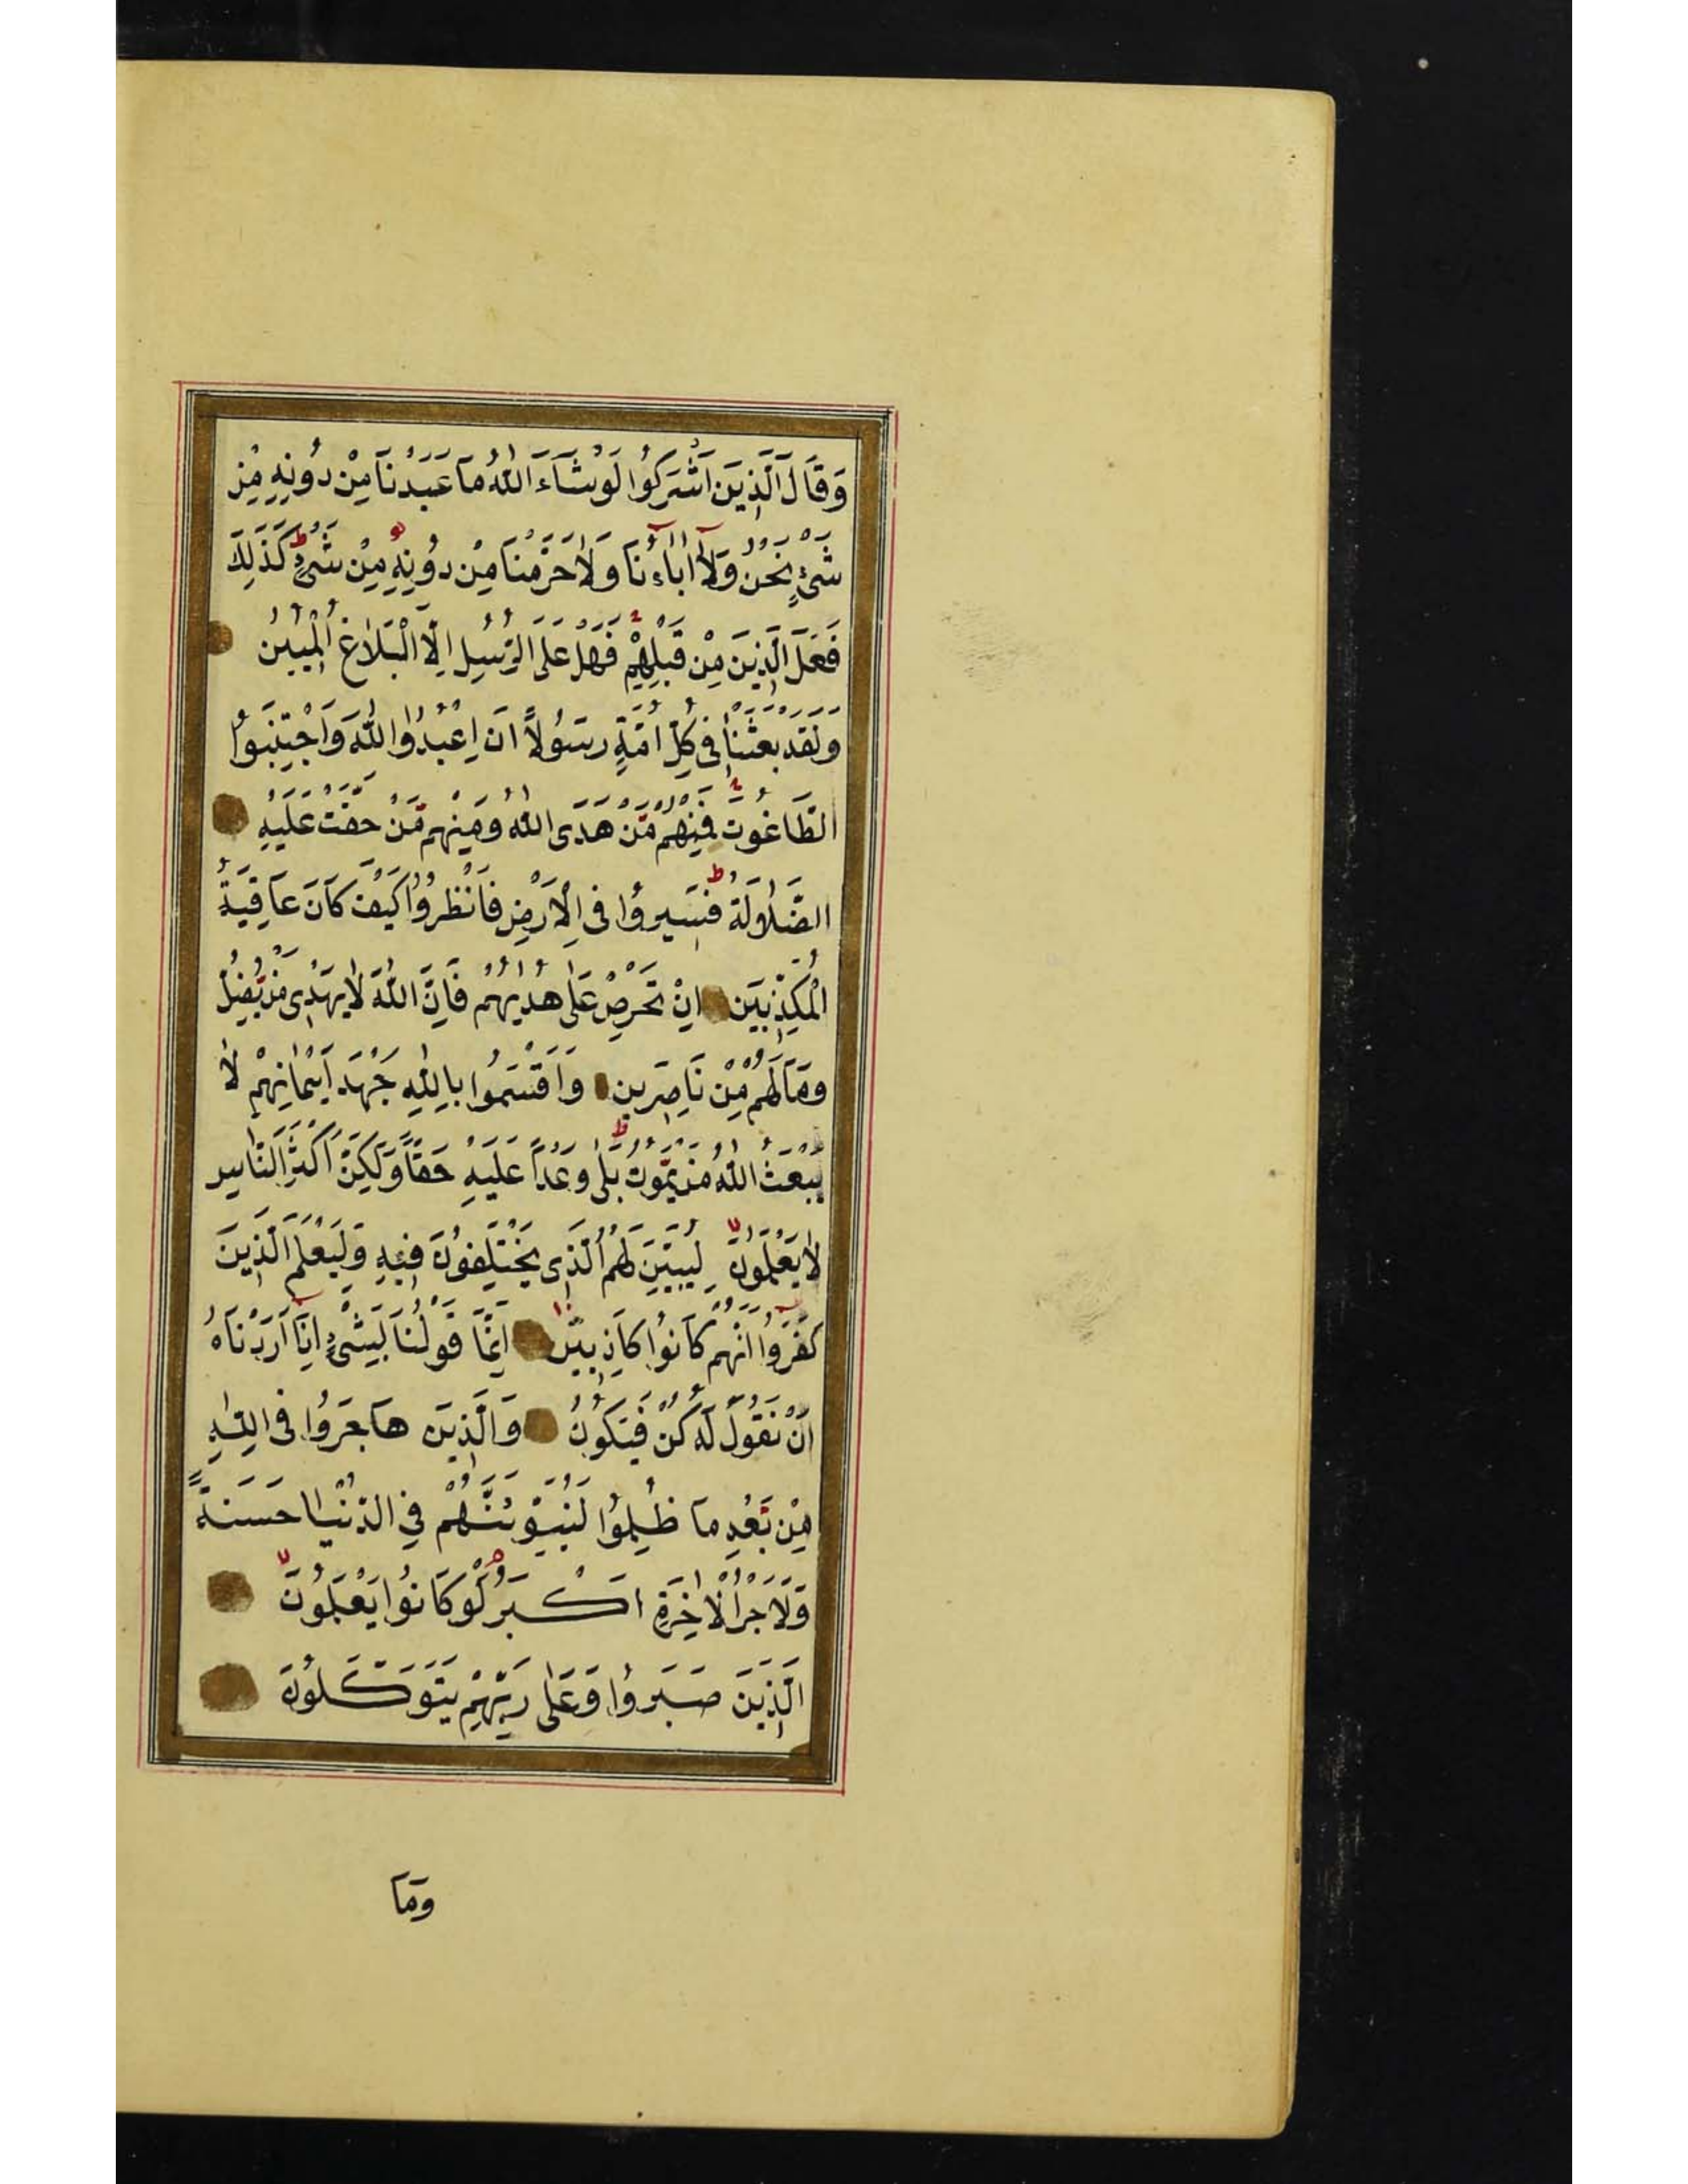 وَقَالَ الَّذِينَ اَشْرَكُوا لَوْ شَآءَ اللّٰهُ مَا عَبَدْنَا مِنْ دُونِهِ مِنْ
شَىْءٍ نَحْنُ وَلَآ اٰبَآءُنَا وَلَا حَرَّمْنَا مِنْ دُونِهِ مِنْ شَىْءٍ ط كَذٰلِكَ
فَعَلَ الَّذِينَ مِنْ قَبْلِهِمْ فَهَلْ عَلَى الرُّسُلِ اِلَّا الْبَلَاغُ الْمُبِينُ
وَلَقَدْ بَعَثْنَا فِى كُلِّ اُمَّةٍ رَسُولًا اَنِ اعْبُدُوا اللّٰهَ وَاجْتَنِبُوا
الطَّاغُوتَ فَمِنْهُمْ مَنْ هَدَى اللّٰهُ وَمِنْهُمْ مَنْ حَقَّتْ عَلَيْهِ
الضَّلَالَةُ ط فَسِيرُوا فِى الْاَرْضِ فَانْظُرُوا كَيْفَ كَانَ عَاقِبَةُ
الْمُكَذِّبِينَ اِنْ تَحْرِصْ عَلٰى هُدٰيهُمْ فَاِنَّ اللّٰهَ لَا يَهْدِى مَنْ يُضِلُّ
وَمَا لَهُمْ مِنْ نَاصِرِينَ وَاَقْسَمُوا بِاللّٰهِ جَهْدَ اَيْمَانِهِمْ لَا
يَبْعَثُ اللّٰهُ مَنْ يَمُوتُ ط بَلٰى وَعْدًا عَلَيْهِ حَقًّا وَلٰكِنَّ اَكْثَرَ النَّاسِ
لَا يَعْلَمُونَ لا لِيُبَيِّنَ لَهُمُ الَّذِى يَخْتَلِفُونَ فِيهِ وَلِيَعْلَمَ الَّذِينَ
كَفَرُوا اَنَّهُمْ كَانُوا كَاذِبِينَ اِنَّمَا قَوْلُنَا لِشَىْءٍ اِذَا اَرَدْنَاهُ
اَنْ نَقُولَ لَهُ كُنْ فَيَكُونُ وَالَّذِينَ هَاجَرُوا فِى اللّٰهِ
مِنْ بَعْدِ مَا ظُلِمُوا لَنُبَوِّئَنَّهُمْ فِى الدُّنْيَا حَسَنَةً
وَلَاَجْرُ الْاٰخِرَةِ اَكْبَرُ م لَوْ كَانُوا يَعْلَمُونَ لا
الَّذِينَ صَبَرُوا وَعَلٰى رَبِّهِمْ يَتَوَكَّلُونَ
وَمَا